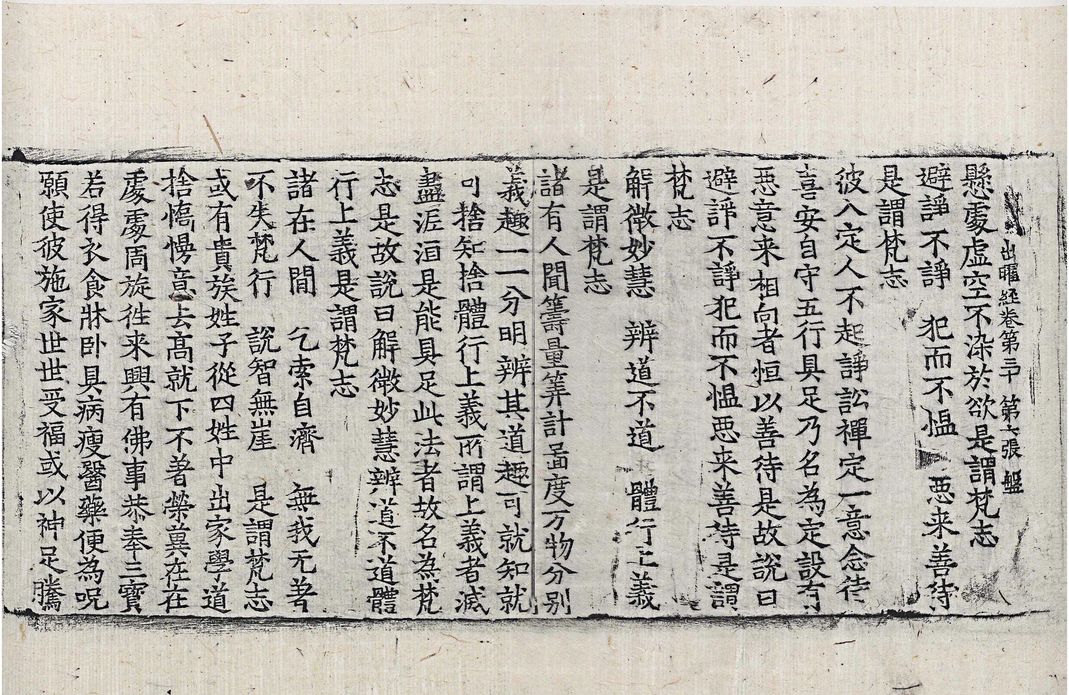 出曜經卷第三十 第六張 盤
懸處虛空不染於欲是謂梵志
避諍不諍 犯而不愠 惡来善待
是謂梵志
彼入定人不起諍訟禪定一意念待
喜安自守五行具足乃名為定設有
惡意来相向者恒以善待是故說曰
避諍不諍犯而不愠惡来善待是謂
梵志
解微妙慧 辨道不道 體行上義
是謂梵志
諸有人間籌量筭計啚度万物分別
義趣一一分明辨其道趣可就知就
可捨知捨體行上義所謂上義者滅
盡泥洹是能具足此法者故名為梵
志是故說曰解微妙慧辨道不道體
行上義是謂梵志
諸在人間 乞索自濟 無我无著
不失梵行 說智無崖 是謂梵志
或有貴族姓子從四姓中出家學道
捨憍慢意去髙就下不著榮兾在在
處處周旋徃来興有佛事恭奉三寶
若得衣食牀卧具病瘦醫藥便為呪
願使彼施家世世受福或以神足騰